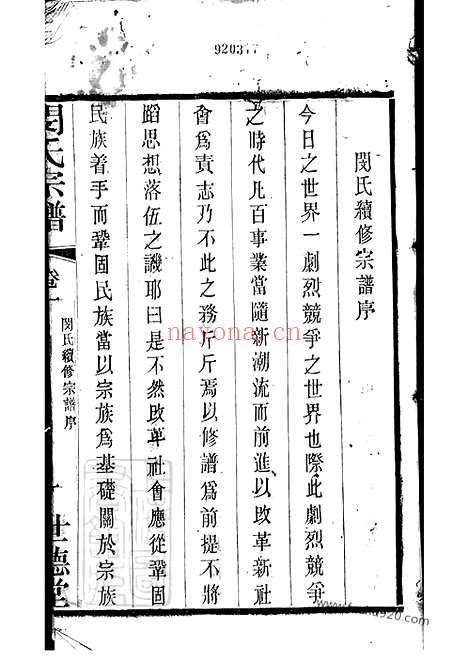 920377
閔氏續修宗譜序
今日之世界一劇烈競爭之世界也際此劇烈競爭
之時代凡百事業當隨新潮流而前進、以改革新社
會爲責志乃不此之務斤斤焉以修譜爲前提不將
蹈思想落伍之譏耶曰是不然改革社會應從鞏固
民族着手而鞏固民族當以宗族爲基礎關於宗族
閔氏宗譜
卷一
閔氏續修宗譜序
一
世德堂
nayona.cn